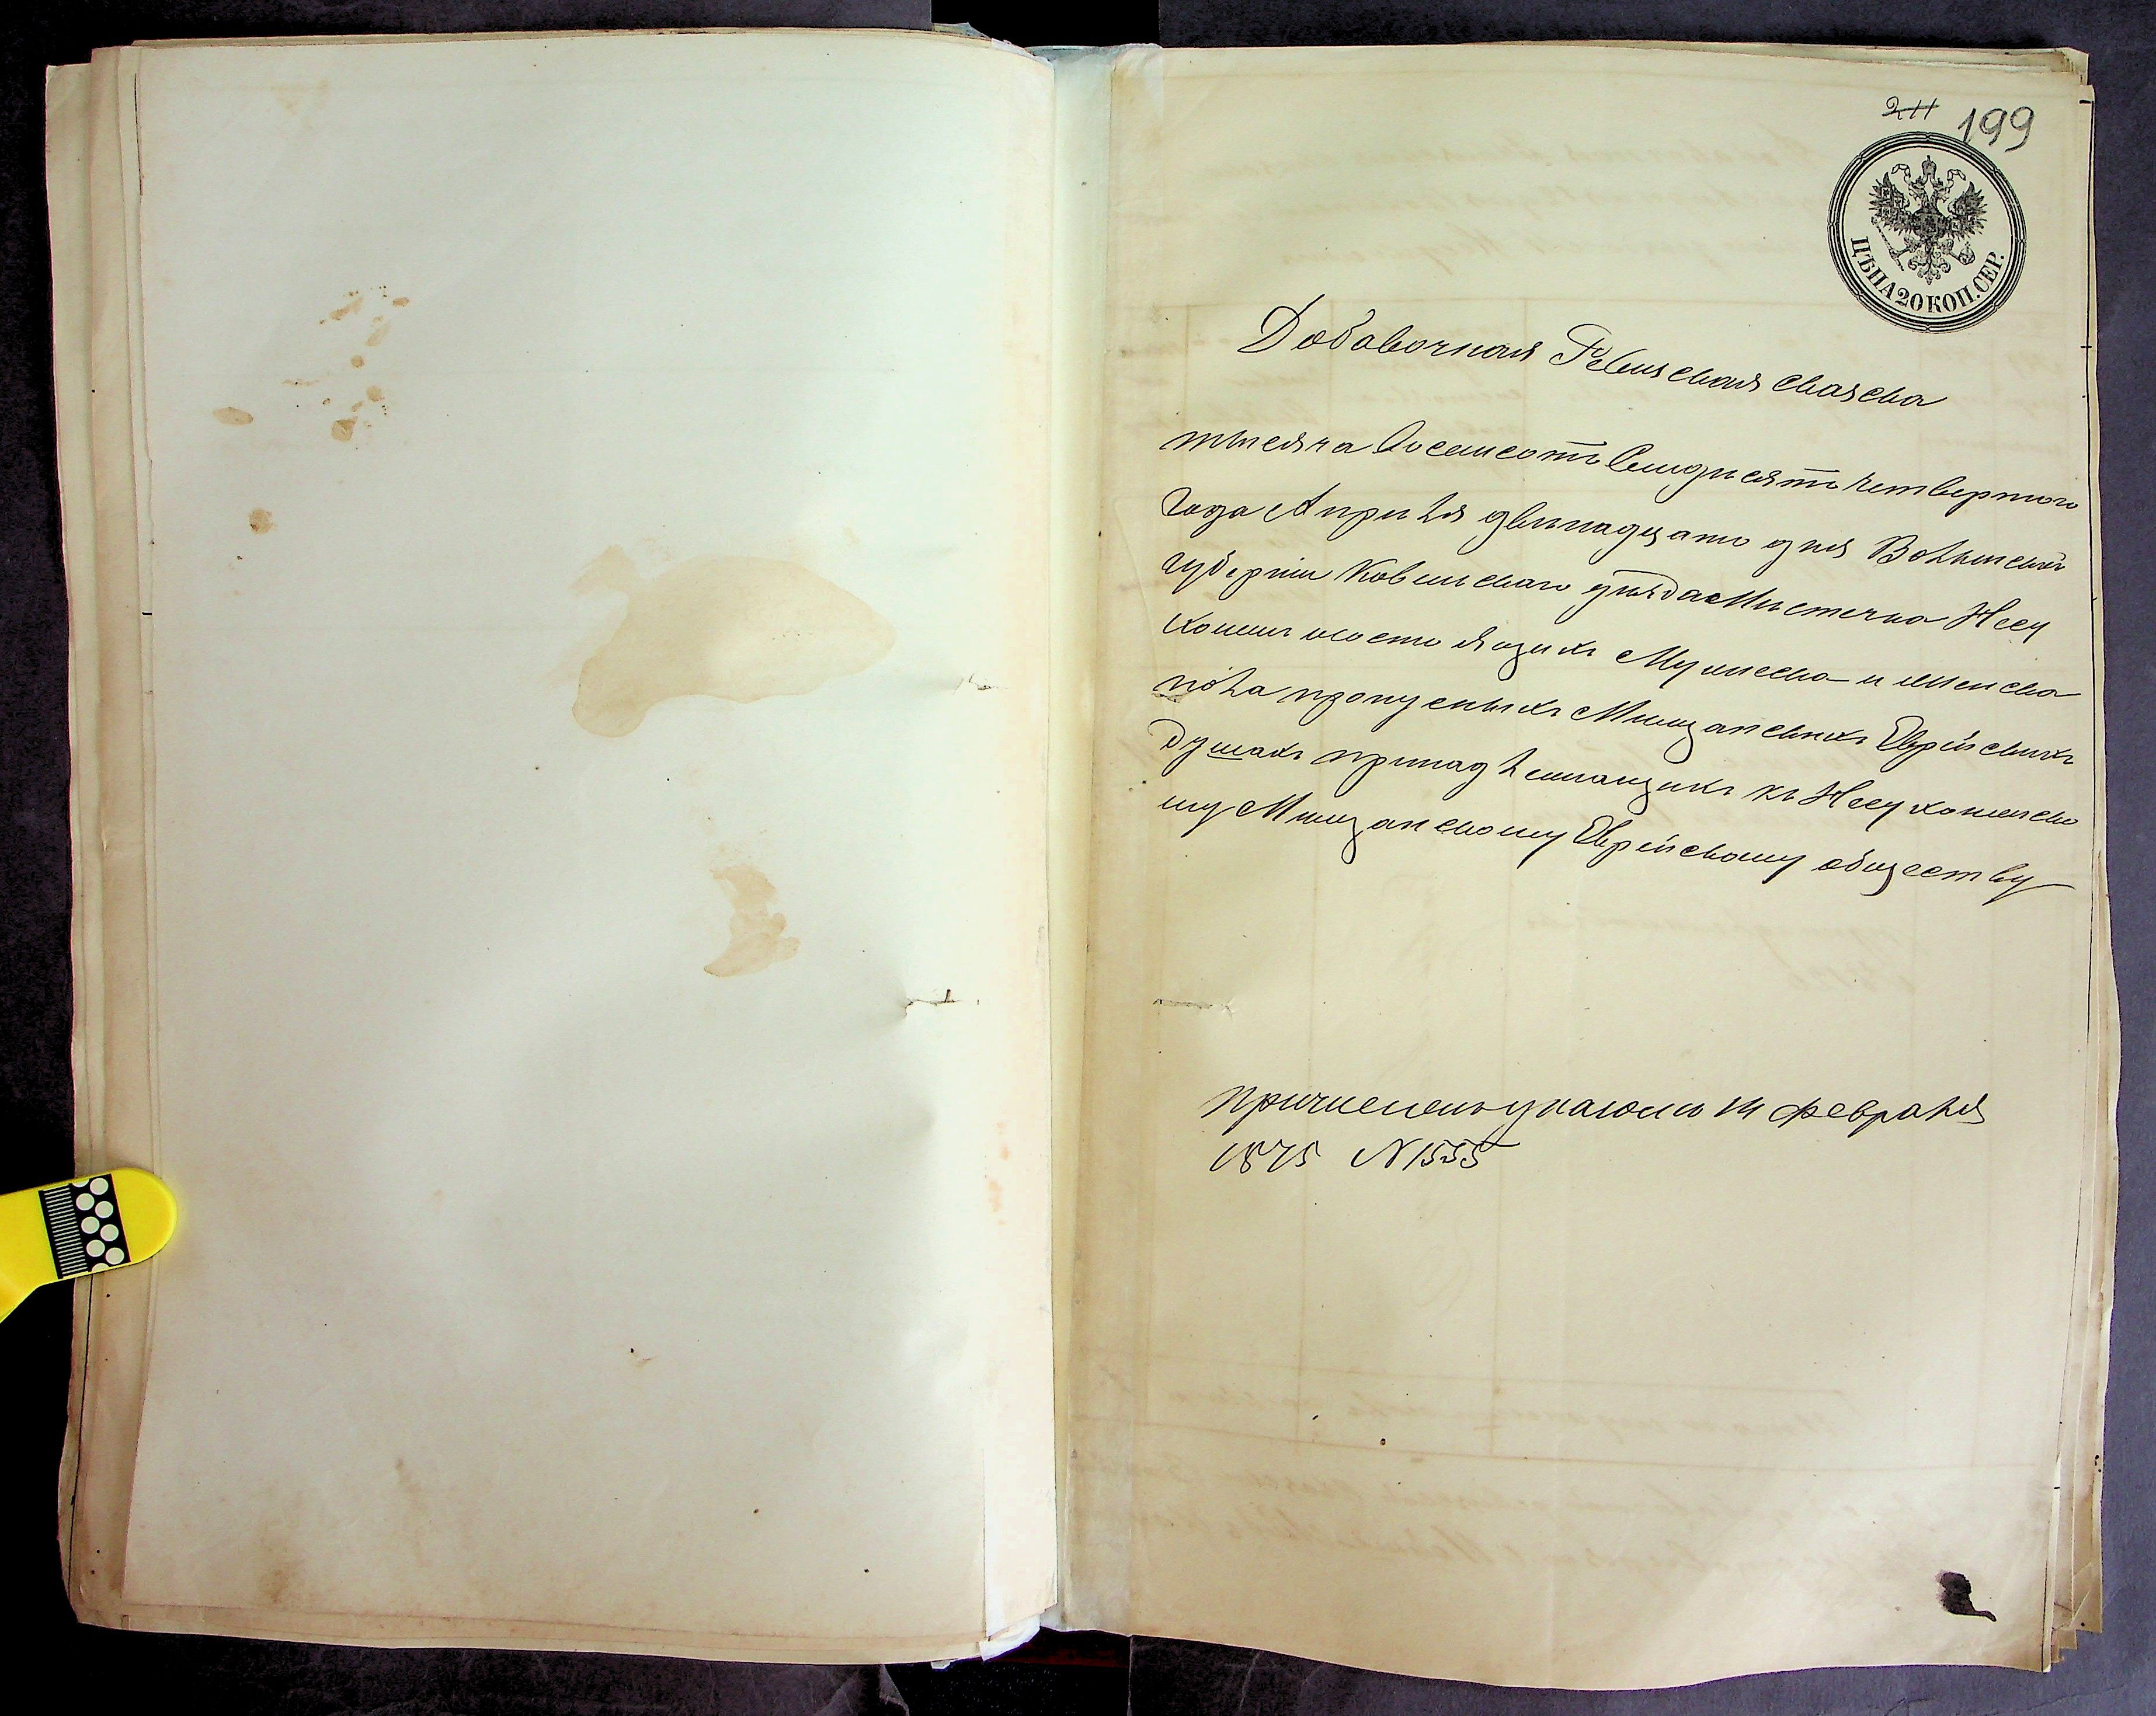 211 199
ЦѢНА 20 КОП. СЕР.
Добавочная Ревизская сказка
тысяча восемсотъ семдисятъ четвертого
года Априля двѣнадцато дня Волынской
губерніи Ковельскаго уѣзда Мистечка Несу
хоижъ о состоящихъ Мужеска и женска
пола пропусныхъ Мищанскихъ Еврейскихъ
душахъ принадлежащихъ къ Несухоижско
му Мищанскому Еврейскому обществу
причислены указомъ 14 февраля
1875 N 1555